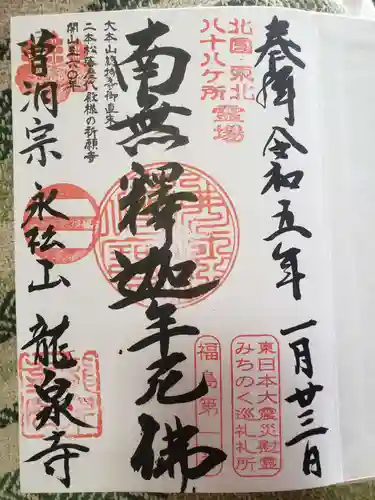 奉拝 令和五年 一月廿三日
北国・東北
八十八ヶ所 霊場
東日本大震災慰霊
みちのく巡礼札所
福島第
南無釋迦牟尼佛
大本山總持寺御直末
二本松藩歴代殿様の祈願寺
開山六〇〇年
曹洞宗 永松山 龍泉寺